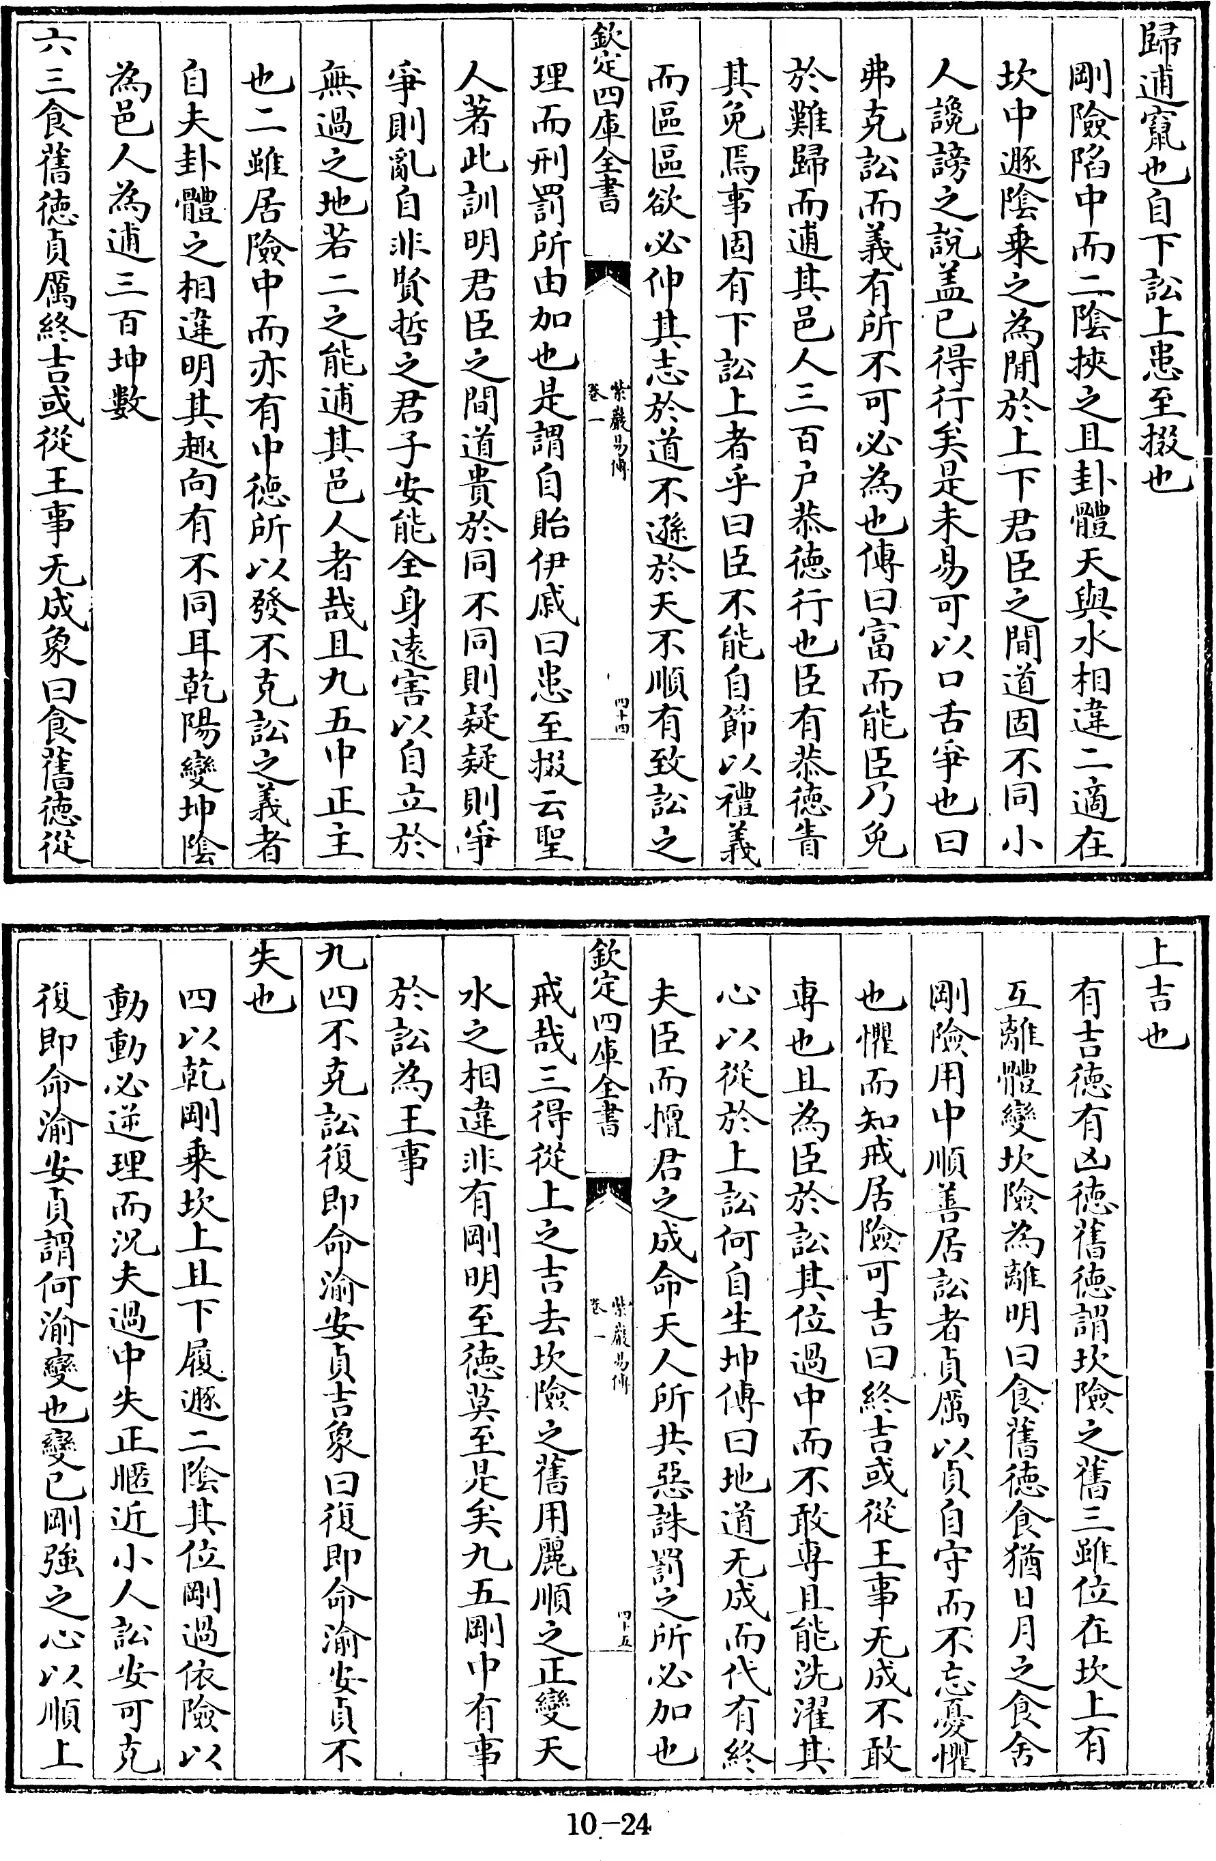 歸逋竄也自下訟上患至掇也
剛險陷中而二陰挾之且卦體天與水相違二適在
坎中遯陰乗之為閒於上下君臣之間道固不同小
人讒謗之說盖已得行矣是未易可以口舌爭也曰
弗克訟而義有所不可必為也傳曰富而能臣乃免
於難歸而逋其邑人三百户恭徳行也臣有恭徳眚
其免焉事固有下訟上者乎曰臣不能自節以禮義
而區區欲必伸其志於道不遜於天不順有致訟之
欽定四庫全書
紫巖易傳
卷一
四十四
理而刑罰所由加也是謂自貽伊戚曰患至掇云聖
人著此訓明君臣之間道貴於同不同則疑疑則爭
爭則亂自非賢哲之君子安能全身逺害以自立於
無過之地若二之能逋其邑人者哉且九五中正主
也二雖居險中而亦有中徳所以發不克訟之義者
自夫卦體之相違明其趣向有不同耳乾陽變坤陰
為邑人為逋三百坤數
六三食舊徳貞厲終吉或從王事无成象曰食舊徳從
上吉也
有吉徳有凶徳舊徳謂坎險之舊三雖位在坎上有
互離體變坎險為離明曰食舊徳食猶日月之食舍
剛險用中順善居訟者貞厲以貞自守而不忘憂懼
也懼而知戒居險可吉曰終吉或從王事无成不敢
専也且為臣於訟其位過中而不敢専且能洗濯其
心以從於上訟何自生坤傳曰地道无成而代有終
夫臣而擅君之成命天人所共惡誅罰之所必加也
欽定四庫全書
紫巖易傳
卷一
四十五
戒哉三得從上之吉去坎險之舊用麗順之正變天
水之相違非有剛明至徳莫至是矣九五剛中有事
於訟為王事
九四不克訟復即命渝安貞吉象曰復即命渝安貞不
失也
四以乾剛乗坎上且下履遯二陰其位剛過依險以
動動必逆理而況夫過中失正暱近小人訟安可克
復即命渝安貞謂何渝變也變已剛強之心以順上
10-24